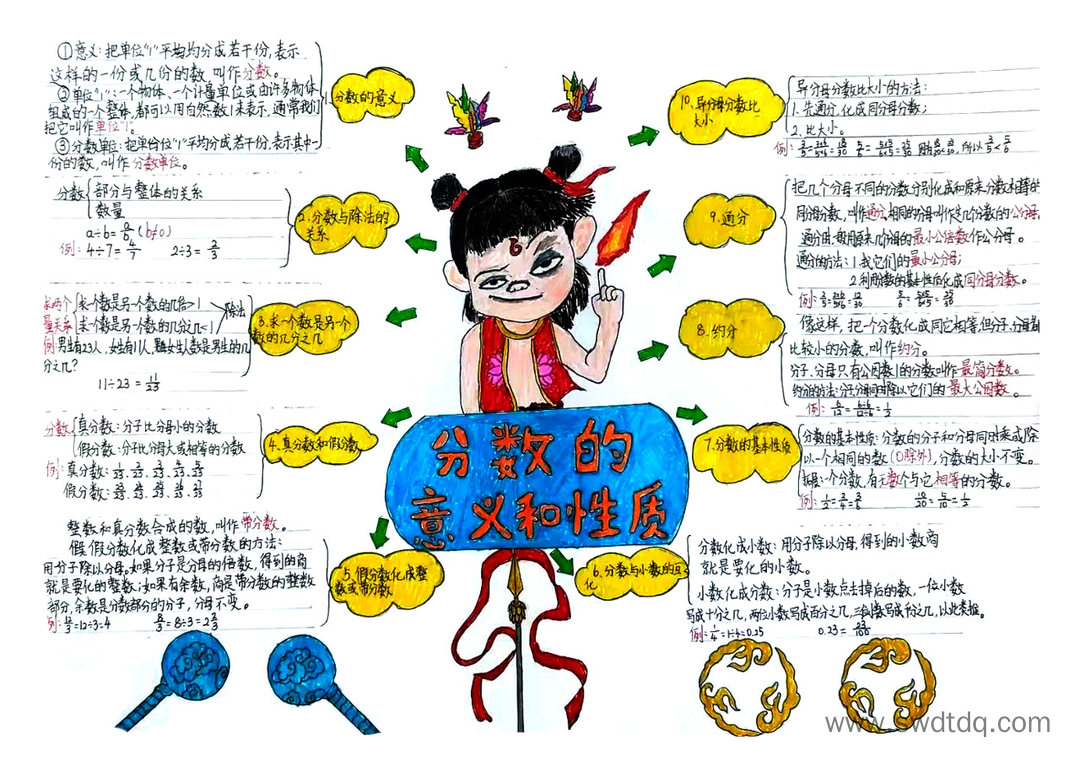 ①意义:把单位"1"平均均分成若干份,表示
这样的一份或几份的数,叫作分数。
②单位"1":一个物体、一个计量单位或由许多物体
组成的一个整体,都可以用自然数1来表示,通常我们
把它叫作单位"1"。
③分数单位:把单位"1"平均分成若干份,表示其中一
份的数,叫作分数单位。
1.分数的意义
分数 部分与整体的关系
数量
a÷b=a/b (b≠0)
例:4÷7=4/7 2÷3=2/3
2.分数与除法的
关系
求两个 求一个数是另一个数的几倍>1 除法
量关系 求一个数是另一个数的几分之几<1
例:男生有23人,女生有11人,女生人数是男生的几
分之几?
11÷23=11/23
3.求一个数是另一个
数的几分之几
分数 真分数:分子比分母小的分数
假分数:分子比分母大或相等的分数
例:真分数:
假分数:
4.真分数和假分数
整数和真分数合成的数,叫作带分数。
假假分数化成整数或带分数的方法:
用分子除以分母。如果分子是分母的倍数,得到的商
就是要化的整数;如果有余数,商是带分数的整数
部分,余数是分数部分的分子,分母不变。
例:12/3=12÷3=4 8/3=8÷3=2 2/3
5.假分数化成整
数或带分数
分数的
意义和性质
10.异分母分数比
大小
异分母分数比大小的方法:
1.先通分,化成同分母分数;
2.比大小。
例:
9.通分
把几个分母不同的分数分别化成和原来分数相等的
同分母分数,叫作通分,相同的分母叫作这几个分数的公分母;
通分时,要用原来几个分母的最小公倍数作公分母。
通分的方法:1.找它们的最小公分母;
2.利用分数的基本性质化成同分母分数。
例:
8.约分
像这样,把一个分数化成同它相等,但分子、分母
比较小的分数,叫作约分。
分子、分母只有公因数1的分数叫作最简分数。
约分的方法:分子分母同时除以它们的最大公因数。
例:
7.分数的基本性质
分数的基本性质:分数的分子和分母同时乘或除
以一个相同的数(0除外),分数的大小不变。
一个分数,有无数个与它相等的分数。
例:1/2=2/4=3/6 10/20=5/10=1/2
6.分数与小数的互
化
分数化成小数:用分子除以分母,得到的小数商
就是要化的小数。
小数化成分数:分子是小数点去掉后的数,一位小数
写成十分之几,两位小数写成百分之几,三位小数写成千分之几,以此类推。
例:1/4=1÷4=0.25 0.23=23/100
www.swdtdq.com